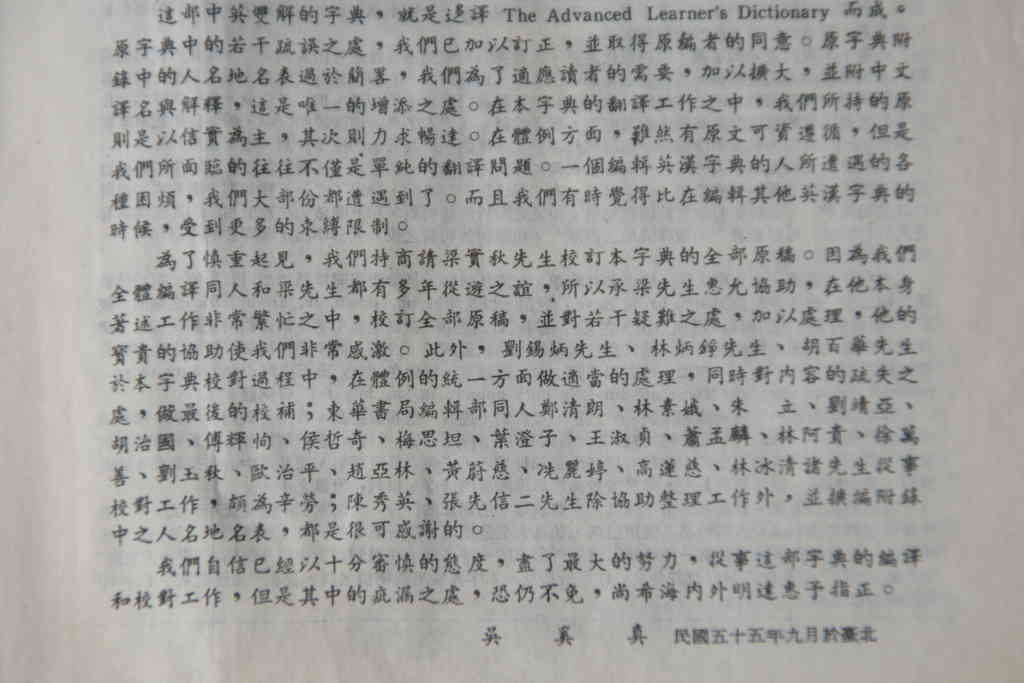 這部中英雙解的字典，就是迻譯 The Advanced Learner's Dictionary 而成。
原字典中的若干疏誤之處，我們已加以訂正，並取得原編者的同意。原字典附
錄中的人名地名表過於簡畧，我們為了適應讀者的需要，加以擴大，並附中文
譯名與解釋，這是唯一的增添之處。在本字典的翻譯工作之中，我們所持的原
則是以信實為主，其次則力求暢達。在體例方面，雖然有原文可資遵循，但是
我們所面臨的往往不僅是單純的翻譯問題。一個編輯英漢字典的人所遭遇的各
種困煩，我們大部份都遭遇到了。而且我們有時覺得比在編輯其他英漢字典的
時候，受到更多的束縛限制。
為了慎重起見，我們特商請梁實秋先生校訂本字典的全部原稿。因為我們
全體編譯同人和梁先生都有多年從遊之誼，所以承梁先生惠允協助，在他本身
著述工作非常繁忙之中，校訂全部原稿，並對若干疑難之處，加以處理，他的
寶貴的協助使我們非常感激。此外，劉錫炳先生、林炳錚先生、胡百華先生
於本字典校對過程中，在體例的統一方面做適當的處理，同時對內容的疏失之
處，做最後的校補；東華書局編輯部同人鄭清朗、林素娥、朱　立、劉靖亞、
胡治國、傅輝怡、侯哲奇、梅思坦、葉澄子、王淑貞、蕭孟麟、林阿貴、徐萬
善、劉玉秋、歐治平、趙亞林、黃蔚慈、冼麗婷、高蓮慈、林冰清諸先生從事
校對工作，頗為辛勞；陳秀英、張先信二先生除協助整理工作外，並擴編附錄
中之人名地名表，都是很可感謝的。
我們自信已經以十分審慎的態度，盡了最大的努力，從事這部字典的編譯
和校對工作，但是其中的疵漏之處，恐仍不免，尚希海內外明達惠予指正。
吳　奚　真　民國五十五年九月於臺北